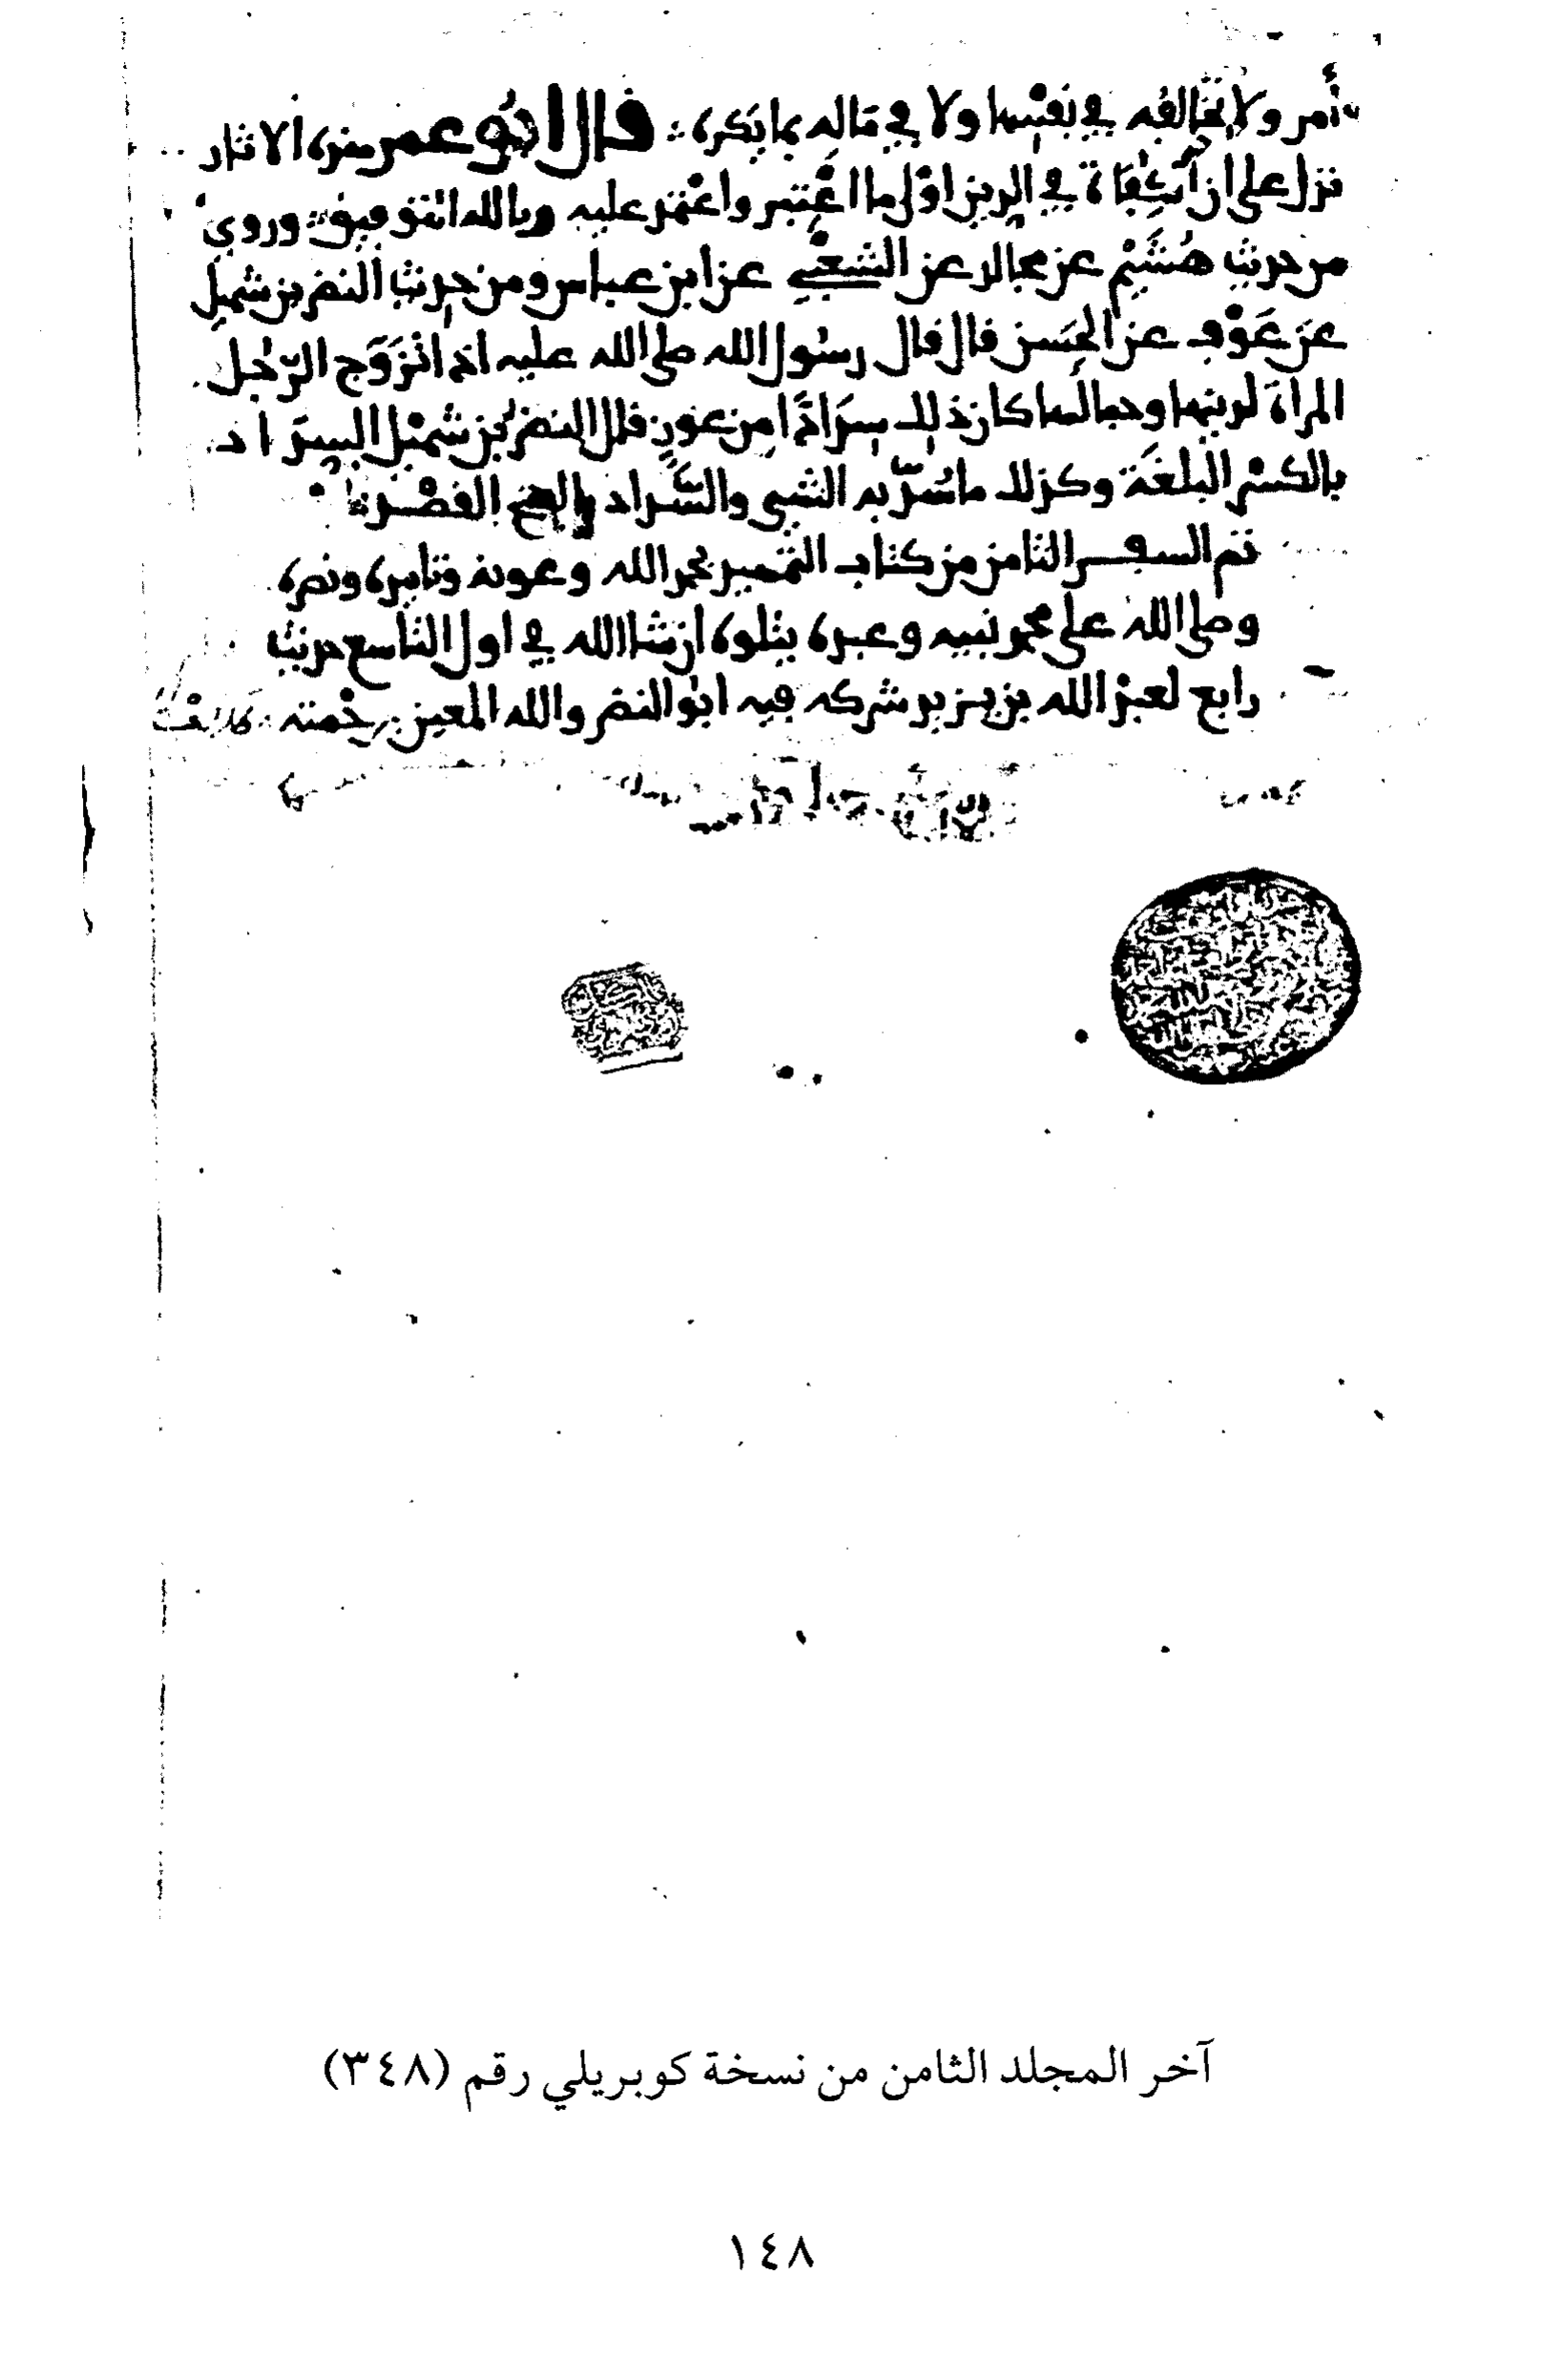 أمر ولا تخالفه في نفسها ولا في ماله بما يكره قال ابو عمر هذه الاثار
تدل على ان الكفاءة في الدين اولى ما اعتبر واعتمد عليه وبالله التوفيق وروي
من حديث هُشَيْم عن مجالد عن الشعبي عن ابن عباس ومن حديث النضر بن شميل
عن عَوْف عن الحسن قال قال رسول الله صلى الله عليه اذا تَزَوَّج الرّجل
المراة لدينها وجمالها كان ذلك سِدَادًا من عوز قال النضر بن شميل السِدَاد
بالكسر البلغة وكذلك ما سُدّ به الشي والسَّداد بالفتح القصْد
تم السفر الثامن من كتاب التمهيد بحمد الله وعونه وتاييده ونصره
وصلى الله على محمد نبيه وعبده يتلوه ان شا الله في اول التاسع حديث
رابع لعبد الله بن يزيد شركه فيه ابو النضر والله المعين برحمته
آخر المجلد الثامن من نسخة كوبريلي رقم (٣٤٨)
١٤٨